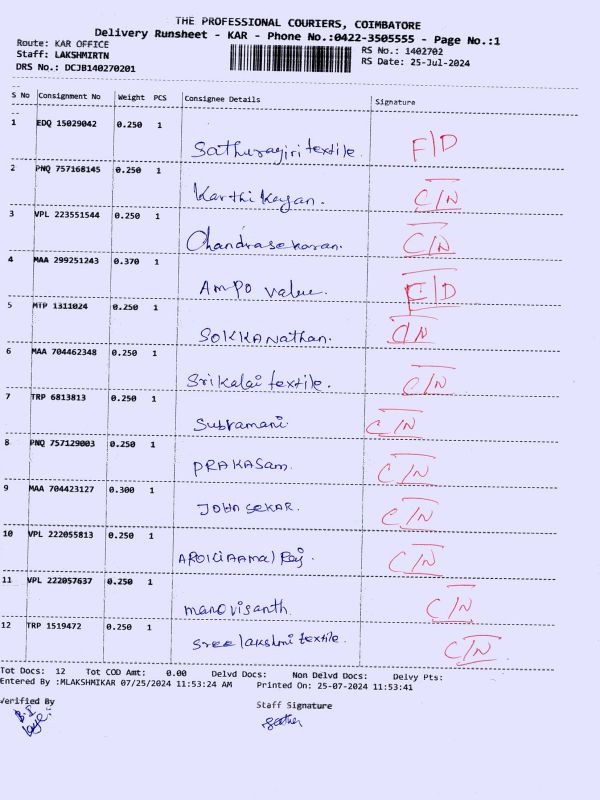 THE PROFESSIONAL COURIERS, COIMBATORE
Delivery Runsheet - KAR - Phone No.:0422-3505555 - Page No.:1
Route: KAR OFFICE RS No.: 1402702
Staff: LAKSHMIRTN RS Date: 25-Jul-2024
DRS No.: DCJB140270201
S No Consignment No Weight PCS Consignee Details Signature
1 EDQ 15029042 0.250 1
Sathuragiri textile. F/D
2 PNQ 757168145 0.250 1
Karthikayan. C/N
3 VPL 223551544 0.250 1
Chandrasekaran. C/N
4 MAA 299251243 0.370 1
Ampo value. F/D
5 MTP 1311024 0.250 1
SOKKANathan. C/N
6 MAA 704462348 0.250 1
Srikalai textile. C/N
7 TRP 6813813 0.250 1
Subramani. C/N
8 PNQ 757129003 0.250 1
PRAKASam. C/N
9 MAA 704423127 0.300 1
SEKAR. C/N
10 VPL 222055813 0.250 1
Raj. C/N
11 VPL 222057637 0.250 1
manovisanth. C/N
12 TRP 1519472 0.250 1
Sree lakshmi textile. C/N
Tot Docs: 12 Tot COD Amt: 0.00 Delvd Docs: Non Delvd Docs: Delvy Pts:
Entered By :MLAKSHMIKAR 07/25/2024 11:53:24 AM Printed On: 25-07-2024 11:53:41
Verified By Staff Signature